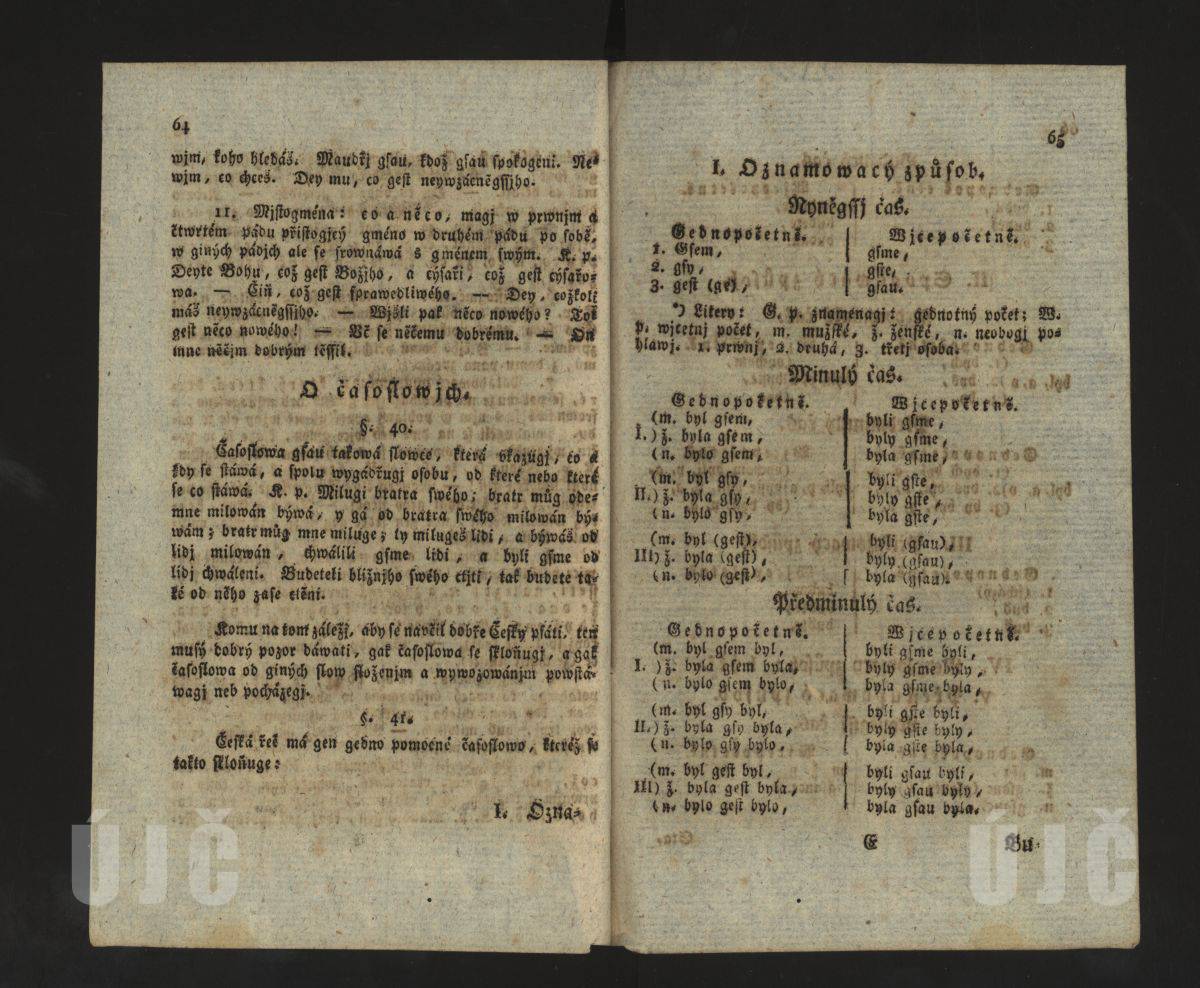 64
wjm, koho hledáš. Maudřj gsau, kdož gsau spokogeni. Ne-
wjm, co chceš. Dey mu, co gest neywzácněgssjho.
11. Mjstogména: co a něco, magj w prwnjm a
čtwrtém pádu přistogjcý gméno w druhém pádu po sobě,
w giných pádjch ale se srownáwá s gménem swým. K. p.
Deyte Bohu, což gest Božjho, a cýsaři, což gest cýsařo-
wa. — Čiň, což gest sprawedliwého. — Dey, cožkoli
máš neywzácněgssjho. — Wjšli pak něco nowého? Toť
gest něco nowého! — Vč se něčemu dobrému. — On
mne něčjm dobrým těssil.
O časoslowjch.
§. 40.
Časoslowa gsau takowá slowce, která vkazugj, co a
kdy se stáwá, a spolu wygádřugj osobu, od které nebo které
se co stáwá. K. p. Milugi bratra swého; bratr můg ode-
mne milowán býwá, y gá od bratra swého milowán bý-
wám; bratr můg mne miluge; ty milugeš lidi, a býwáš od
lidj milowán, chwálili gsme lidi, a byli gsme od
lidj chwáleni. Budeteli bližnjho swého ctjti, tak budete ta-
ké od něho zase ctěni.
Komu na tom záležj, aby se naučil dobře Česky psáti, ten
musý dobrý pozor dáwati, gak časoslowa se skloňugj, a gak
časoslowa od giných slow složenjm a wywozowánjm powstá-
wagj neb pocházegj.
§. 41.
Česká řeč má gen gedno pomocné časoslowo, kteréž se
takto skloňuge:
I. Ozna-
65
I. Oznamowacý způsob.
Nyněgssj čas.
Gednopočetně. Wjcepočetně.
1. Gsem, gsme,
2. gsy, gste,
3. gest (ge), gsau.
*) Litery: G. p. znamenagj: gednotný počet; W.
p. wjcetnj počet, m. mužské, ž. ženské, n. neobogj po-
hlawj. 1. prwnj, 2. druhá, 3. třetj osoba.
Minulý čas.
Gednopočetně. Wjcepočetně.
(m. byl gsem, byli gsme,
I.) ž. byla gsem, byly gsme,
(n. bylo gsem, byla gsme,
(m. byl gsy, byli gste,
II.) ž. byla gsy, byly gste,
(n. bylo gsy, byla gste,
(m. byl (gest), byli (gsau),
III) ž. byla (gest), byly (gsau),
(n. bylo (gest), byla (gsau).
Předminulý čas.
Gednopočetně. Wjcepočetně.
(m. byl gsem byl, byli gsme byli,
I. ) ž. byla gsem byla, byly gsme byly,
(n. bylo gsem bylo, byla gsme byla,
(m. byl gsy byl, byli gste byli,
II.) ž. byla gsy byla, byly gste byly,
(n. bylo gsy bylo, byla gste byla,
(m. byl gest byl, byli gsau byli,
III) ž. byla gest byla, byly gsau byly,
(n. bylo gest bylo, byla gsau byla.
E Bu-
ÚJČ ÚJČ